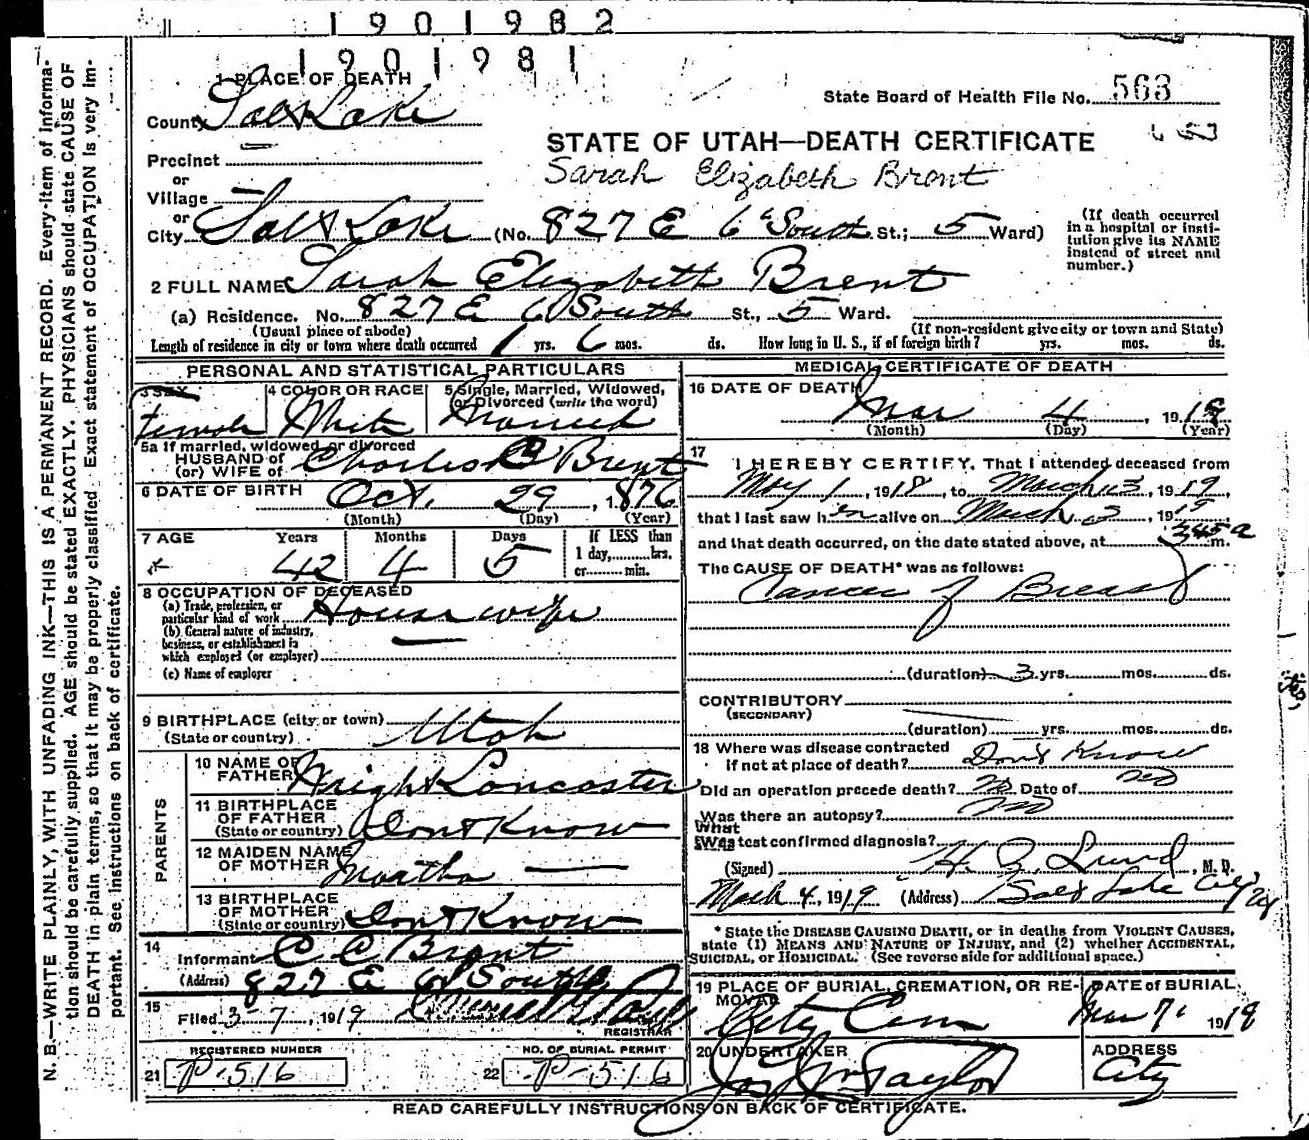 1901982
1901981
1 PLACE OF DEATH
State Board of Health File No. 563
County Salt Lake
STATE OF UTAH—DEATH CERTIFICATE
Precinct
Sarah Elizabeth Brent
or
Village —
or
City Salt Lake (No. 827 E 6 South St.; 5 Ward)
(If death occurred in a hospital or institution give its NAME instead of street and number.)
2 FULL NAME Sarah Elizabeth Brent
(a) Residence. No. 827 E 6 South St., 5 Ward.
(Usual place of abode) (If non-resident give city or town and State)
Length of residence in city or town where death occurred 1 yrs. 6 mos. ds. How long in U. S., if of foreign birth? yrs. mos. ds.
PERSONAL AND STATISTICAL PARTICULARS
3 SEX 4 COLOR OR RACE 5 Single, Married, Widowed, or Divorced (write the word)
Female White Married
5a If married, widowed or divorced
HUSBAND of
(or) WIFE of Charles B Brent
6 DATE OF BIRTH Oct. 29, 1876
(Month) (Day) (Year)
7 AGE Years Months Days If LESS than
42 4 5 1 day, hrs.
or min.
8 OCCUPATION OF DECEASED
(a) Trade, profession, or
particular kind of work Housewife
(b) General nature of industry,
business, or establishment in
which employed (or employer)
(c) Name of employer
9 BIRTHPLACE (city or town) Utah
(State or country)
PARENTS
10 NAME OF
FATHER Wright Lancaster
11 BIRTHPLACE
OF FATHER
(State or country) Dont Know
12 MAIDEN NAME
OF MOTHER Martha —
13 BIRTHPLACE
OF MOTHER
(State or country) Dont Know
14
Informant C C Brent
(Address) 827 E 6 South
15
Filed 3-7, 1919
REGISTRAR
REGISTERED NUMBER
21 P-516
NO. OF BURIAL PERMIT
22 P-516
MEDICAL CERTIFICATE OF DEATH
16 DATE OF DEATH
Mar 4, 1919
(Month) (Day) (Year)
17
I HEREBY CERTIFY, That I attended deceased from
May 1, 1918, to March 3, 1919,
that I last saw her alive on March 3, 1919
and that death occurred, on the date stated above, at 345 a m.
The CAUSE OF DEATH* was as follows:
Cancer of Breast
(duration) 3 yrs. mos. ds.
CONTRIBUTORY
(SECONDARY)
(duration) yrs. mos. ds.
18 Where was disease contracted
if not at place of death? Dont Know
Did an operation precede death? No Date of no
Was there an autopsy? no
What test confirmed diagnosis?
(Signed) H. Z. Lund, M. D.
Mach 4, 1919 (Address) Salt Lake City
* State the DISEASE CAUSING DEATH, or in deaths from VIOLENT CAUSES,
state (1) MEANS AND NATURE OF INJURY, and (2) whether ACCIDENTAL,
SUICIDAL, or HOMICIDAL. (See reverse side for additional space.)
19 PLACE OF BURIAL, CREMATION, OR RE- DATE of BURIAL
MOVAL
City Cem Mar 7 1919
20 UNDERTAKER ADDRESS
Jos Wm Taylor City
READ CAREFULLY INSTRUCTIONS ON BACK OF CERTIFICATE.
N. B.—WRITE PLAINLY, WITH UNFADING INK—THIS IS A PERMANENT RECORD. Every item of informa-
tion should be carefully supplied. AGE should be stated EXACTLY. PHYSICIANS should state CAUSE OF
DEATH in plain terms, so that it may be properly classified. Exact statement of OCCUPATION is very im-
portant. See instructions on back of certificate.